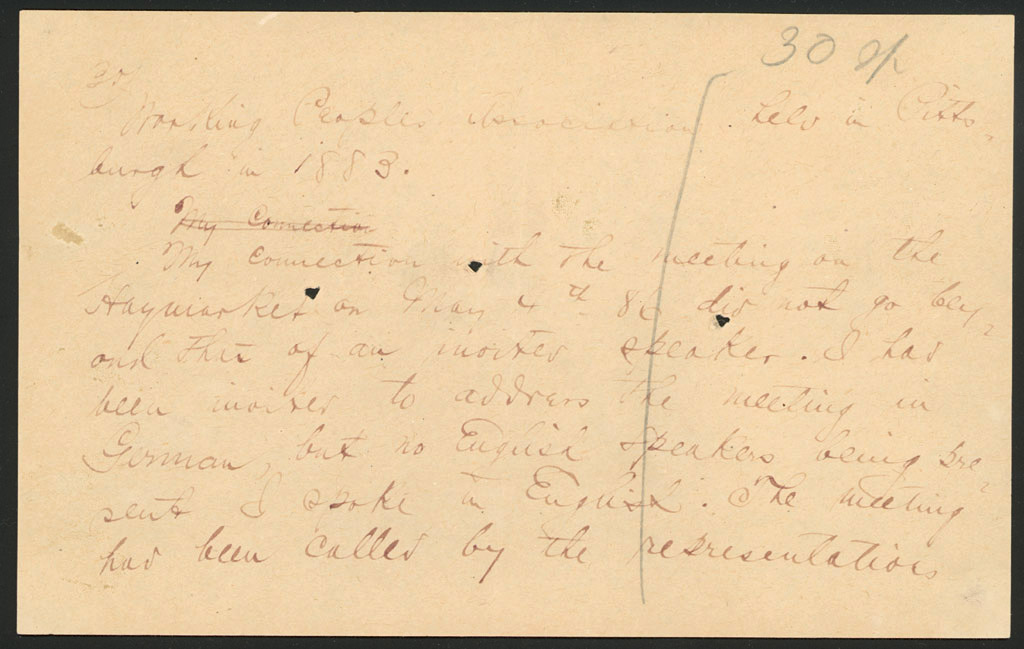 30 of
30/
Working Peoples Association held in Pitts-
burgh in 1883.
My Connection
My connection with the meeting on the
Haymarket on May 4th 86 did not go bey-
ond that of an invited speaker. I had
been invited to address the meeting in
German, but no English speakers being pre-
sent I spoke in English. The meeting
had been called by the representations